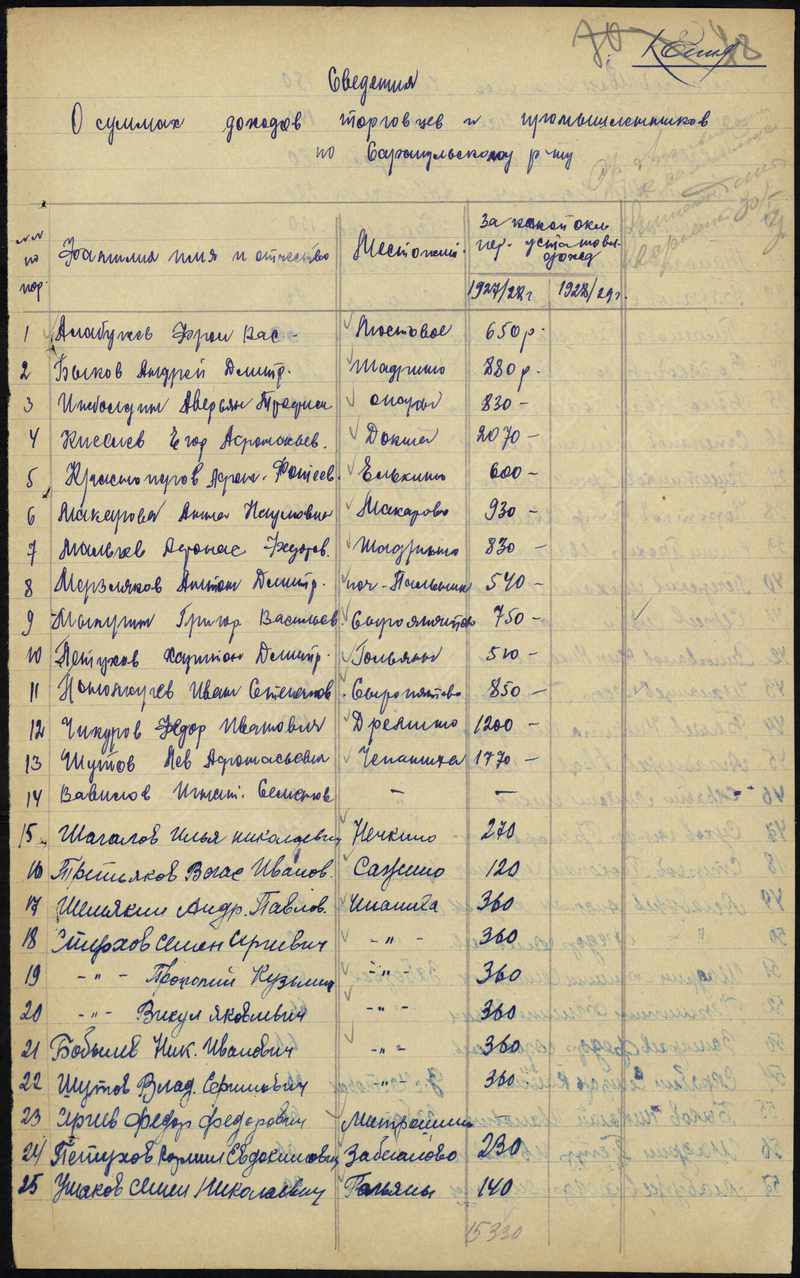 70
Сведения
О суммах доходов торговцев и промышленников
по Сарапульскому р-ну
№№ по пор. Фамилия имя и отчество Местожит. За какой окл. пер. установл. доход
1927/28 г. 1928/29 г.
1 Алабужев Фрол Вас - Мостовое 650 р.
2 Быков Андрей Дмитр. Шадрино 880 р.
3 Аверьян 830 -
4 Киселев Егор Афонасьев. Докша 2070 -
5 Красноперов Афон. Фотеев. Елькино 600 -
6 Макарова Анна Наумовна Макарово 930 -
7 Мальчев Афонас Федотов. Шадрино 830 -
8 Мерзляков Антон Дмитр. поч - Пальники 540 -
9 Григор Васильев. 750 -
10 Петухов Харитон Дмитр. Гольяны 500 -
11 Иван Степанов Сыропятово 850 -
12 Чикуров Федор Иванович Дремино 1200 -
13 Шутов Лев Афонасьевич Чепаниха 1770 -
14 Вавилов Игнат. Семенов - -
15 Шагалов Илья Николаевич Нечкино 270
16 Третьяков Влас Иванов. Сажино 120
17 Шемякин Андр. Павлов. Чепаниха 360
18 Стерхов Семен Сергеевич - " - 360
19 - " - Прокопий Кузьмич - " - 360
20 - " - Викул Яковлевич - " - 360
21 Бобылев Ник. Иванович - " - 360
22 Шутов Влад. Ефимович - " - 360
23 Сергеев Федор Федорович Митрошино
24 Петухов Козмил Евдокимович Забегалово 230
25 Ушаков Семен Николаевич Гольяны 140
15330